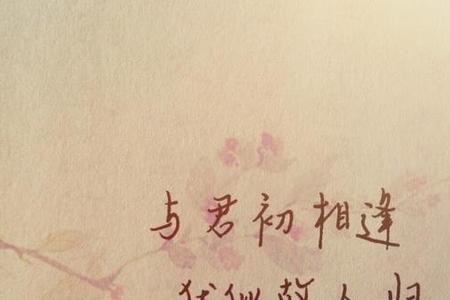 与君初相逢
犹似故人归